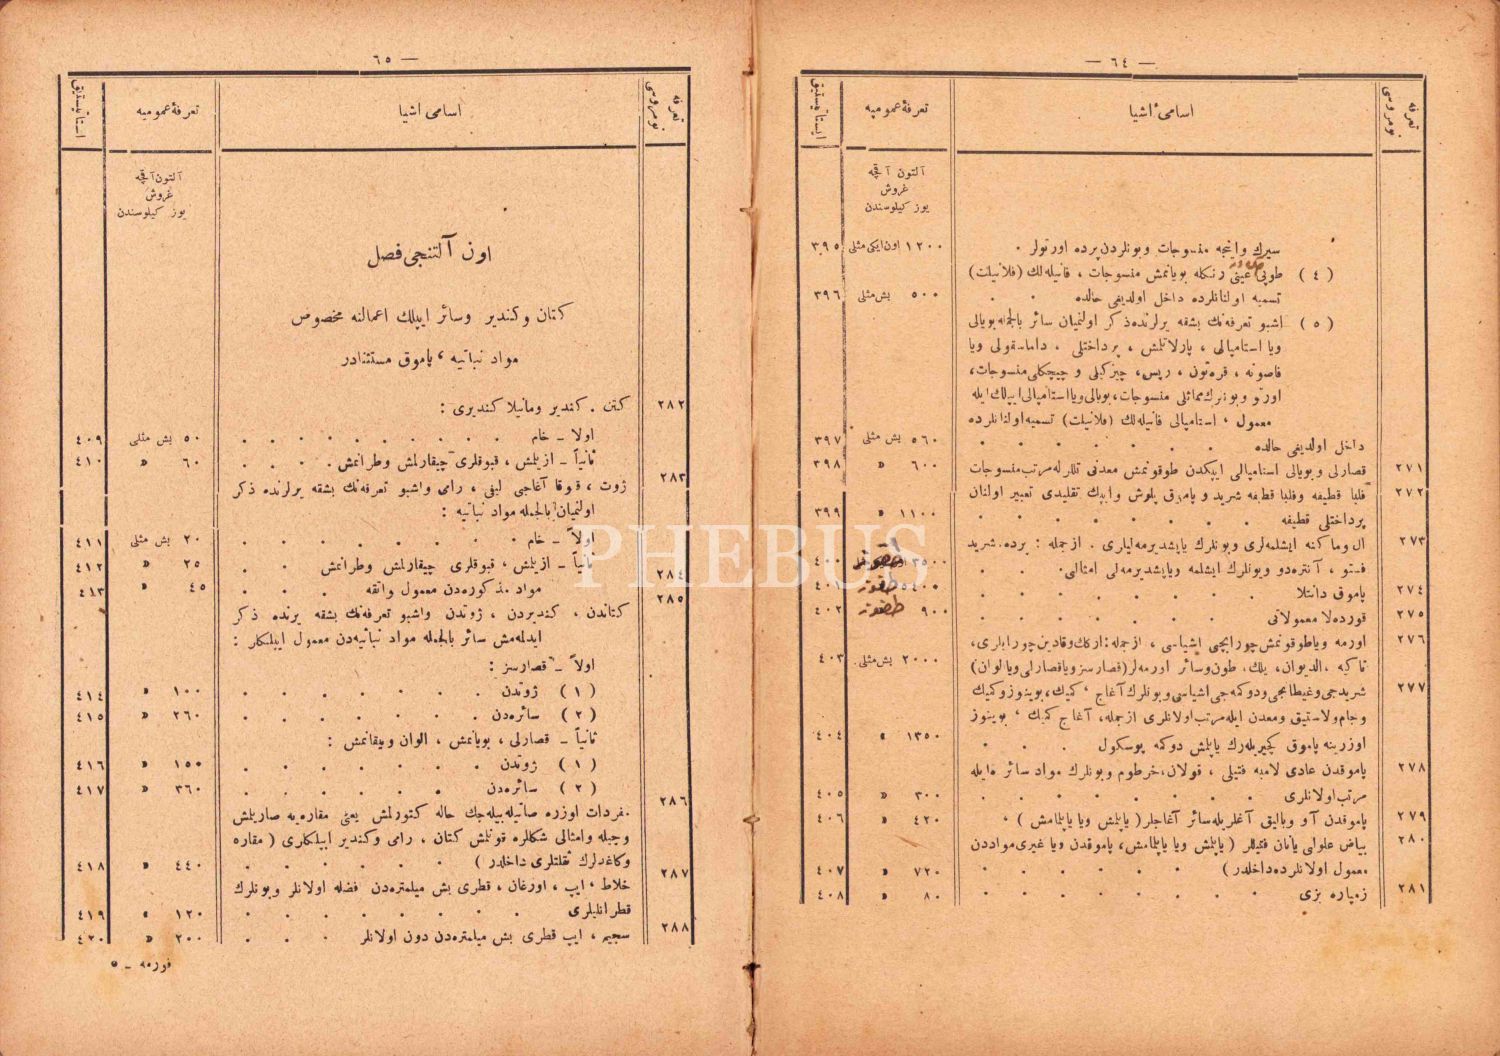 — ٦٤ —
تعرفه نومروسی
اسامیٔ اشیا
تعرفهٔ عمومیه
ایستاتیستیق
آلتون آقچه
غروش
یوز کیلوسندن
سیرك واینجه منسوجات وبونلردن پرده اورتولر . ١٢٠٠ اون ایکی مثلی ٣٩٥
( ٤ ) طوپی عینی رنکله بویانمش منسوجات ، فانیله‌لك (فلانیلت)
تسمیه اولنانلرده داخل اولدیغی حالده . . ٥٠٠ بش مثلی ٣٩٦
( ٥ ) اشبو تعرفه‌نك بشقه یرلرنده ذکر اولنمیان سائر بالجمله بویالی
ویا استامپالی ، پارلاتلمش ، پرداختلی ، داماسقولی ویا
فاصونه ، قره‌تون ، رپس، چیزکیلی و چیچکلی منسوجات،
اورتو وبونلرك مماثلی منسوجات، بویالی ویا استامپالی ایپلك ایله
معمول ، استامپالی فانیله‌لك (فلانیلت) تسمیه اولنانلرده
داخل اولدیغی حالده . . . . . . ٥٦٠ بش مثلی ٣٩٧
٢٧١ قصارلی وبویالی استامپالی ایپکدن طوقونمش معدنی تللرله مرتب منسوجات ٦٠٠ » ٣٩٨
٢٧٢ قلبا قطیفه وقلبا قطیفه شرید و پاموق پلوش وایپك تقلیدی تعبیر اولنان
پرداختلی قطیفه . . . . . . . ١١٠٠ » ٣٩٩
٢٧٣ ال وماکنه ایشلمه‌لری وبونلرك یاپشدیرمه‌لیلری . ازجمله : پرده، شرید
فستو ، آنتره‌دو وبونلرك ایشلمه ویاپشدیرمه‌لی امثالی . ٣٥٠٠ ٤٠٠
٢٧٤ پاموق دانتلا . . . . . . . ٥٤٠٠ ٤٠١
٢٧٥ قورده‌لا معمولاتی . . . . . . . ٩٠٠ ٤٠٢
٢٧٦ اورمه ویاطوقونمش چوراپجی اشیاسی ، ازجمله: ارکك وقادین چورابلری،
تاکیه ، الدیوان، یلك، طون وسائر اورمه‌لر (قصارسز ویا قصارلی ویا الوان) ٢٠٠٠ بش مثلی ٤٠٣
٢٧٧ شریدجی وغیطانجی ودوکمه‌جی اشیاسی وبونلرك آغاج ، کمیك ، بوینوز وکمیك
وجام ولاستیق ومعدن ایله مرتب اولانلری ازجمله، آغاج کمیك ، بوینوز
اوزرینه پاموق کچیریله‌رك یاپلمش دوکمه پوسکول . . ١٣٥٠ » ٤٠٤
٢٧٨ پاموقدن عادی لامبه فتیلی ، قولان، خرطوم وبونلرك مواد سائره ایله
مرتب اولانلری . . . . . . . ٣٠٠ » ٤٠٥
٢٧٩ پاموقدن آو وبالیق آغلریله سائر آغاجلر ( یاپلمش ویا یاپلمامش ) ، ٤٢٠ » ٤٠٦
٢٨٠ بیاض علولی یانان فتیللر ( یاپلمش ویا یاپلمامش، پاموقدن ویا غیری مواددن
معمول اولانلرده داخلدر ) . . . . . ٧٢٠ » ٤٠٧
٢٨١ زمپاره بزی . . . . . . . ٨٠ » ٤٠٨
— ٦٥ —
تعرفه نومروسی
اسامی اشیا
تعرفهٔ عمومیه
استاتیستیق
آلتون آقچه
غروش
یوز کیلوسندن
اون آلتنجی فصل
کتان وکندیر وسائر ایپلك اعمالنه مخصوص
مواد نباتیه ، پاموق مستثنادر
٢٨٢ کتن . کندیر ومانیلا کندیری :
اولا ـ خام . . . . . . . . ٥٠ بش مثلی ٤٠٩
ثانیاً ـ ازیلمش ، قبوقلری چیقارلمش وطرانمش . . . . ٦٠ » ٤١٠
٢٨٣ ژوت ، قوقا آغاجی لیفی ، رامی واشبو تعرفه‌نك بشقه یرلرنده ذکر
اولنمیان بالجمله مواد نباتیه :
اولاً ـ خام . . . . . . . . ٢٠ بش مثلی ٤١١
ثانیاً ـ ازیلمش ، قبوقلری چیقارلمش وطرانمش . . ٢٥ » ٤١٢
٢٨٤ مواد مذکوره‌دن معمول واتقه . . . ٤٥ » ٤١٣
٢٨٥ کتاندن ، کندیردن ، ژوتدن واشبو تعرفه‌نك بشقه یرنده ذکر
ایدلمه‌مش سائر بالجمله مواد نباتیه‌دن معمول ایپلکلر :
اولاً ـ قصارسز :
( ١ ) ژوتدن . . . . . . ١٠٠ » ٤١٤
( ٢ ) سائره‌دن . . . . . . ٢٦٠ » ٤١٥
ثانیاً ـ قصارلی ، بویانمش ، الوان ویقانمش :
( ١ ) ژوتدن . . . . . . ١٥٠ » ٤١٦
( ٢ ) سائره‌دن . . . . . . ٣٦٠ » ٤١٧
٢٨٦ مفردات اوزره صاتیله‌بیله‌جك حاله کتورلمش یعنی مقاره‌یه صاریلمش
وجیله وامثالی شکللره قونلمش کتان ، رامی وکندیر ایپلکلری ( مقاره
وکاغدلرك ثقلتلری داخلدر ) . . . . ٤٤٠ » ٤١٨
٢٨٧ خلاط ، ایپ ، اورغان ، قطری بش میلمتره‌دن فضله اولانلر وبونلرك
قطرانلیلری . . . . . . . ١٢٠ » ٤١٩
٢٨٨ سجیم ، ایپ قطری بش میلمتره‌دن دون اولانلر . . . ٢٠٠ » ٤٢٠
فورمه ـ ٥
PHEBUS